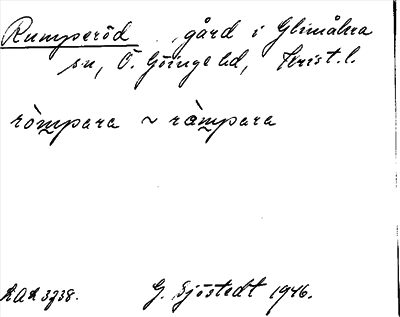 Rumperöd, gård i Glimåkra
sn, Ö. Göinge hd, Krist. l.
ròmpara ~ ràmpara
AAA 3738. G. Sjöstedt 1946.